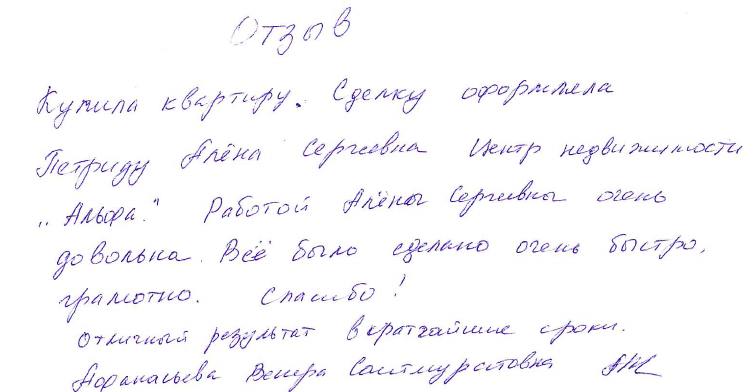 Отзыв
Купила квартиру. Сделку оформляла
Петриду Алёна Сергеевна Центр недвижимости
„Альфа." Работой Алёны Сергеевны очень
довольна. Всё было сделано очень быстро,
грамотно. Спасибо!
Отличный результат в кратчайшие сроки.
Афанасьева Венера Саитмуратовна